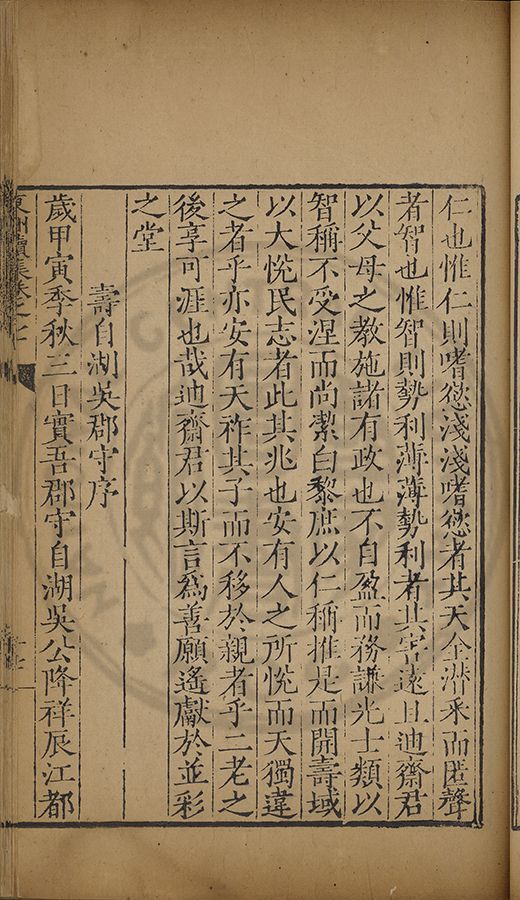 仁也惟仁則嗜慾淺淺嗜慾者其天全潛釆而匿聲
者智也惟智則勢利薄薄勢利者其害遠且迪齋君
以父母之教施諸有政也不自盈而務謙光士類以
智稱不受涅而尚潔白黎庶以仁稱推是而開壽域
以大悅民志者此其兆也安有人之所悅而天獨違
之者乎亦安有天祚其子而不移於親者乎二老之
後享可涯也哉迪齋君以斯言為善願遙獻於並彩
之堂
壽自湖吳郡守序
歲甲寅季秋三日實吾郡守自湖吳公降祥辰江都
東洲續集卷之七